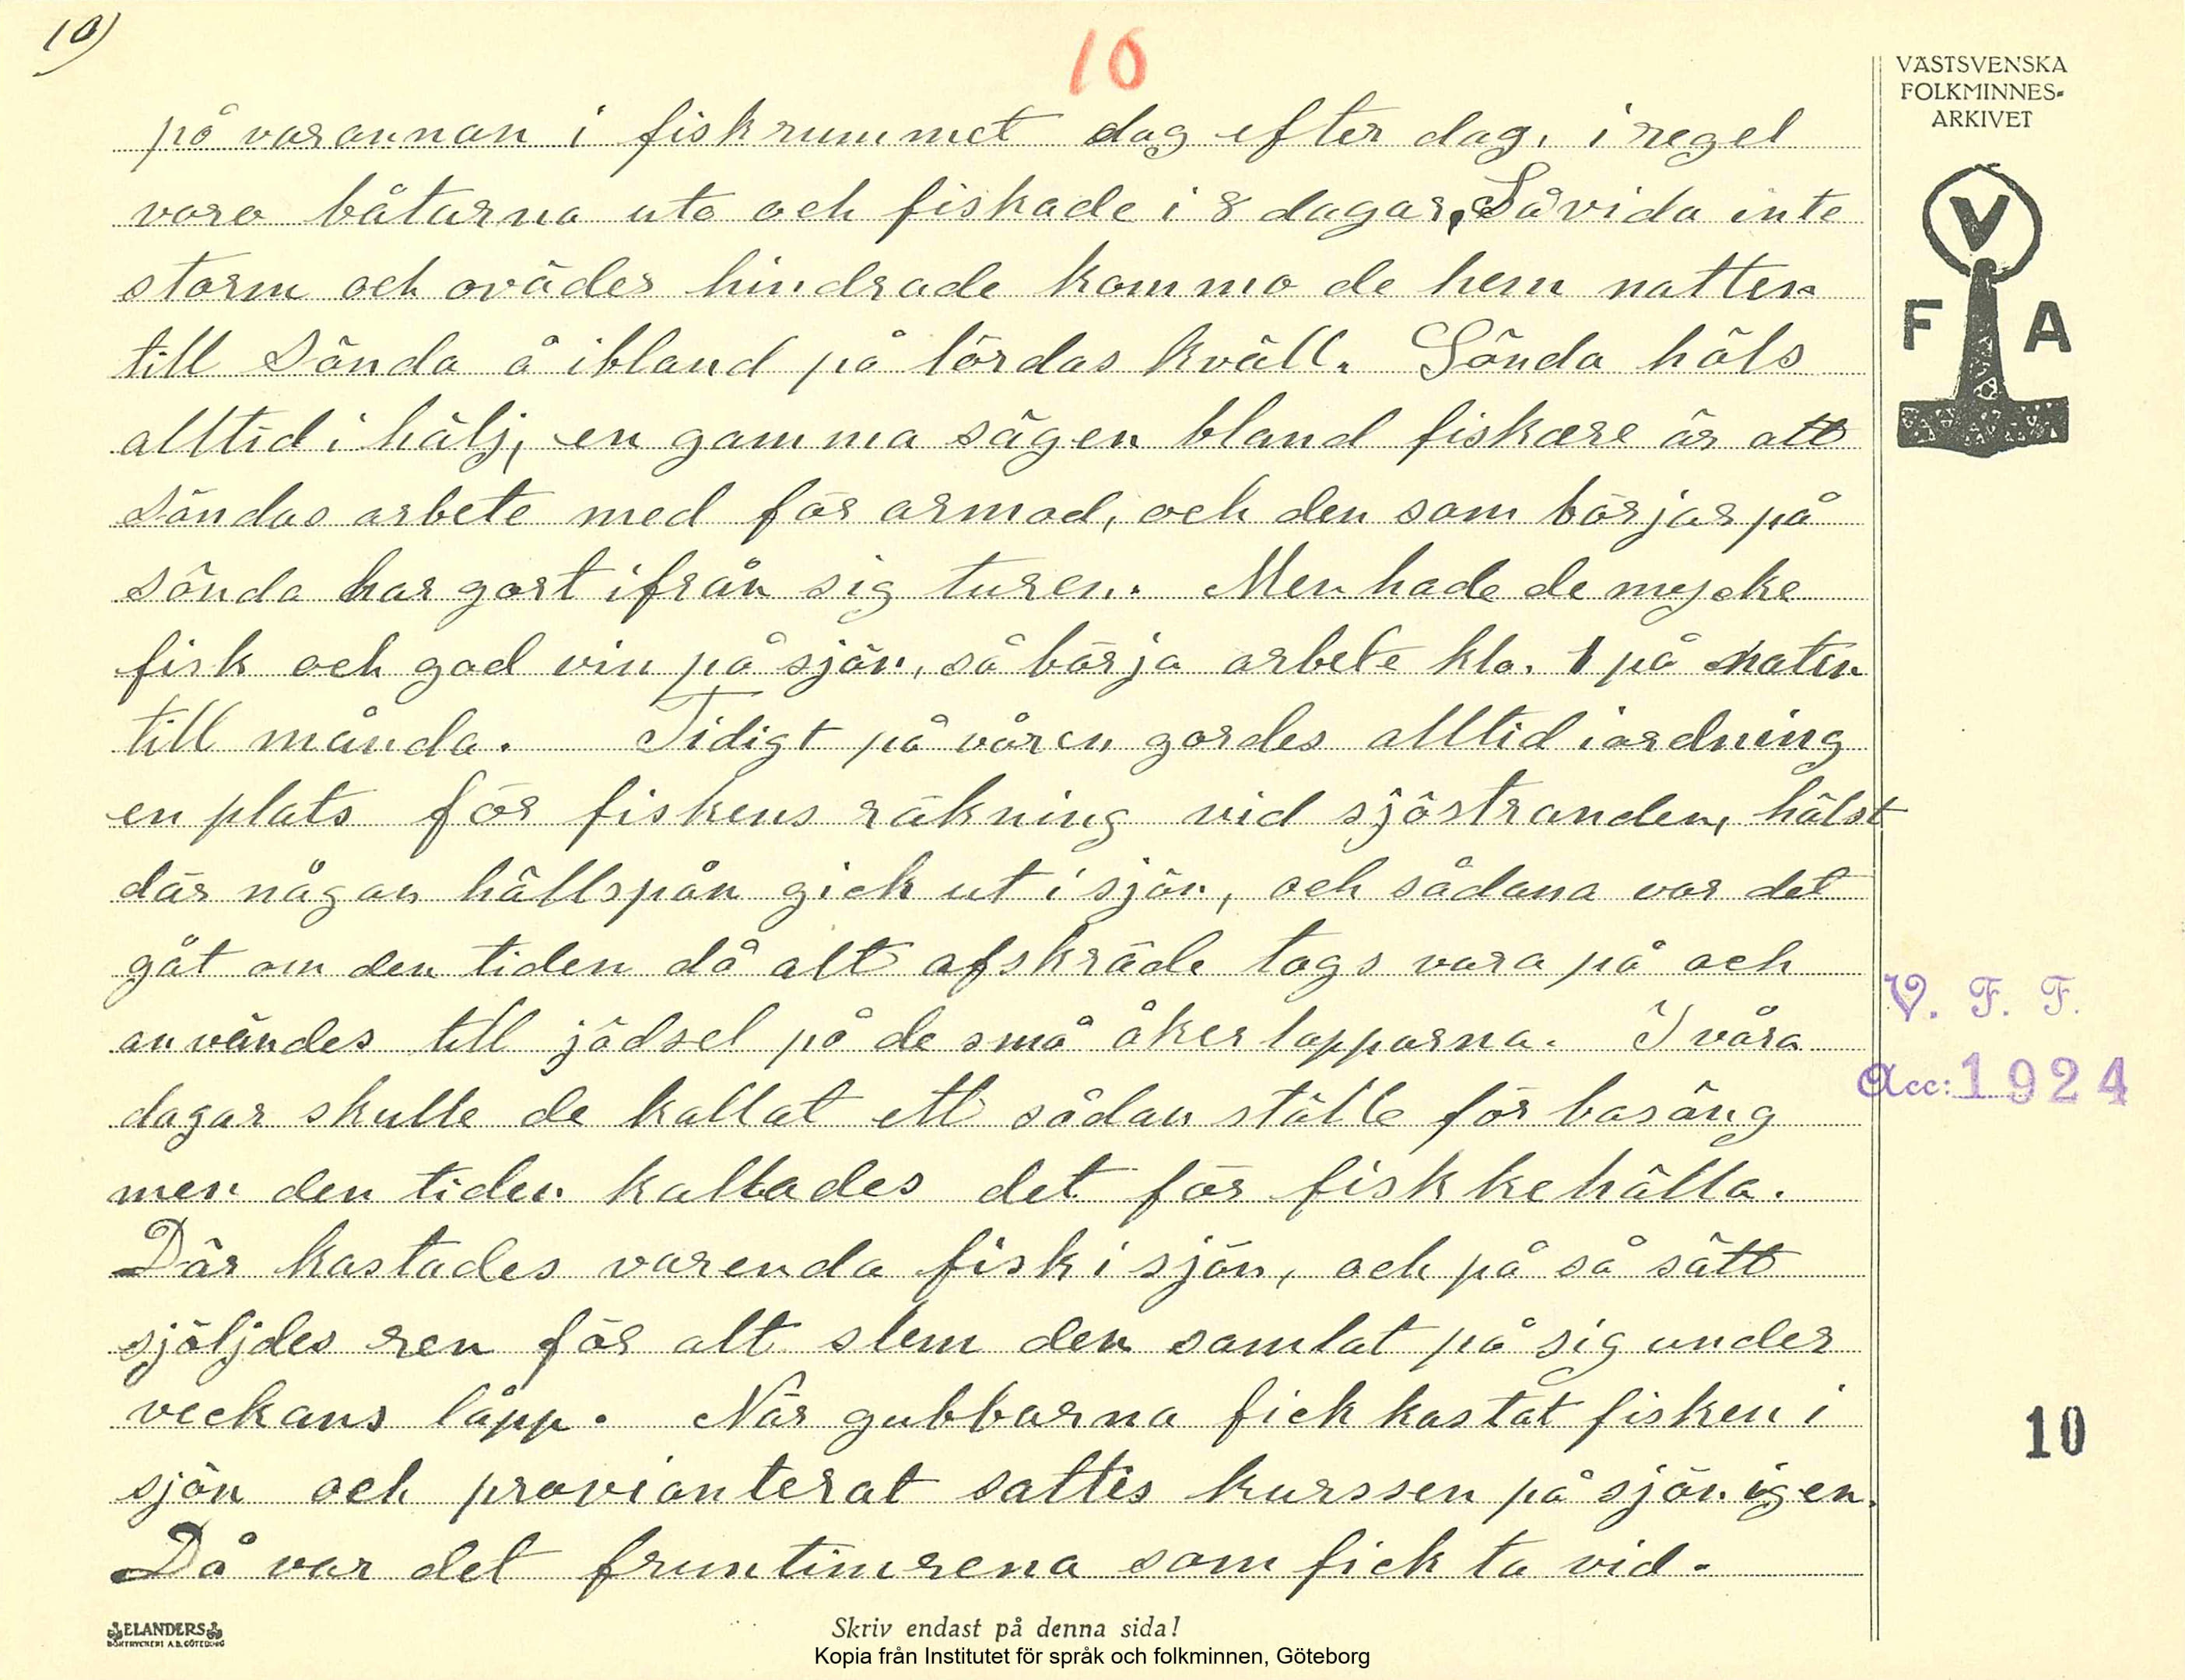 10)
10
VÄSTSVENSKA
FOLKMINNES-
ARKIVET
V
F A
på varannan i fiskrummet dag efter dag. i regel
voro båtarna ute och fiskade i 8 dagar, Såvida inte
storm och oväder hindrade kommo de hem natten
till Sönda å ibland på lördas kväll. Sönda höls
alltid i hälj, en gamma sägen bland fiskare är att
söndas arbete med för armod, och den som börjar på
sönda har gort ifrån sig turen. Men hade de mycke
fisk och god vin på sjön, så börja arbete klo. 1 på naten
till månda. Tidigt på våren gordes alltid iordning
en plats för fiskens räkning vid sjöstranden, hälst
där någon hällspån gick ut i sjön, och sådana var det
gåt om den tiden då alt afskräde togs vara på och
användes till jödsel på de små åkerlapparna. I våra
dagar skulle de kallat ett sådan ställe för basäng
men den tiden kallades det för fiskkehälla.
Där kastades varenda fisk i sjön, och på så sätt
sjöljdes ren för alt slem den samlat på sig under
veckans låpp. När gubbarna fick kastat fisken i
sjön och provianterat sattes kurssen på sjön igen.
Då var det fruntimrena som fick ta vid.
V. F. F.
Acc: 1924
10
ELANDERS
BOKTRYCKERI A.B. GÖTEBORG
Skriv endast på denna sida!
Kopia från Institutet för språk och folkminnen, Göteborg